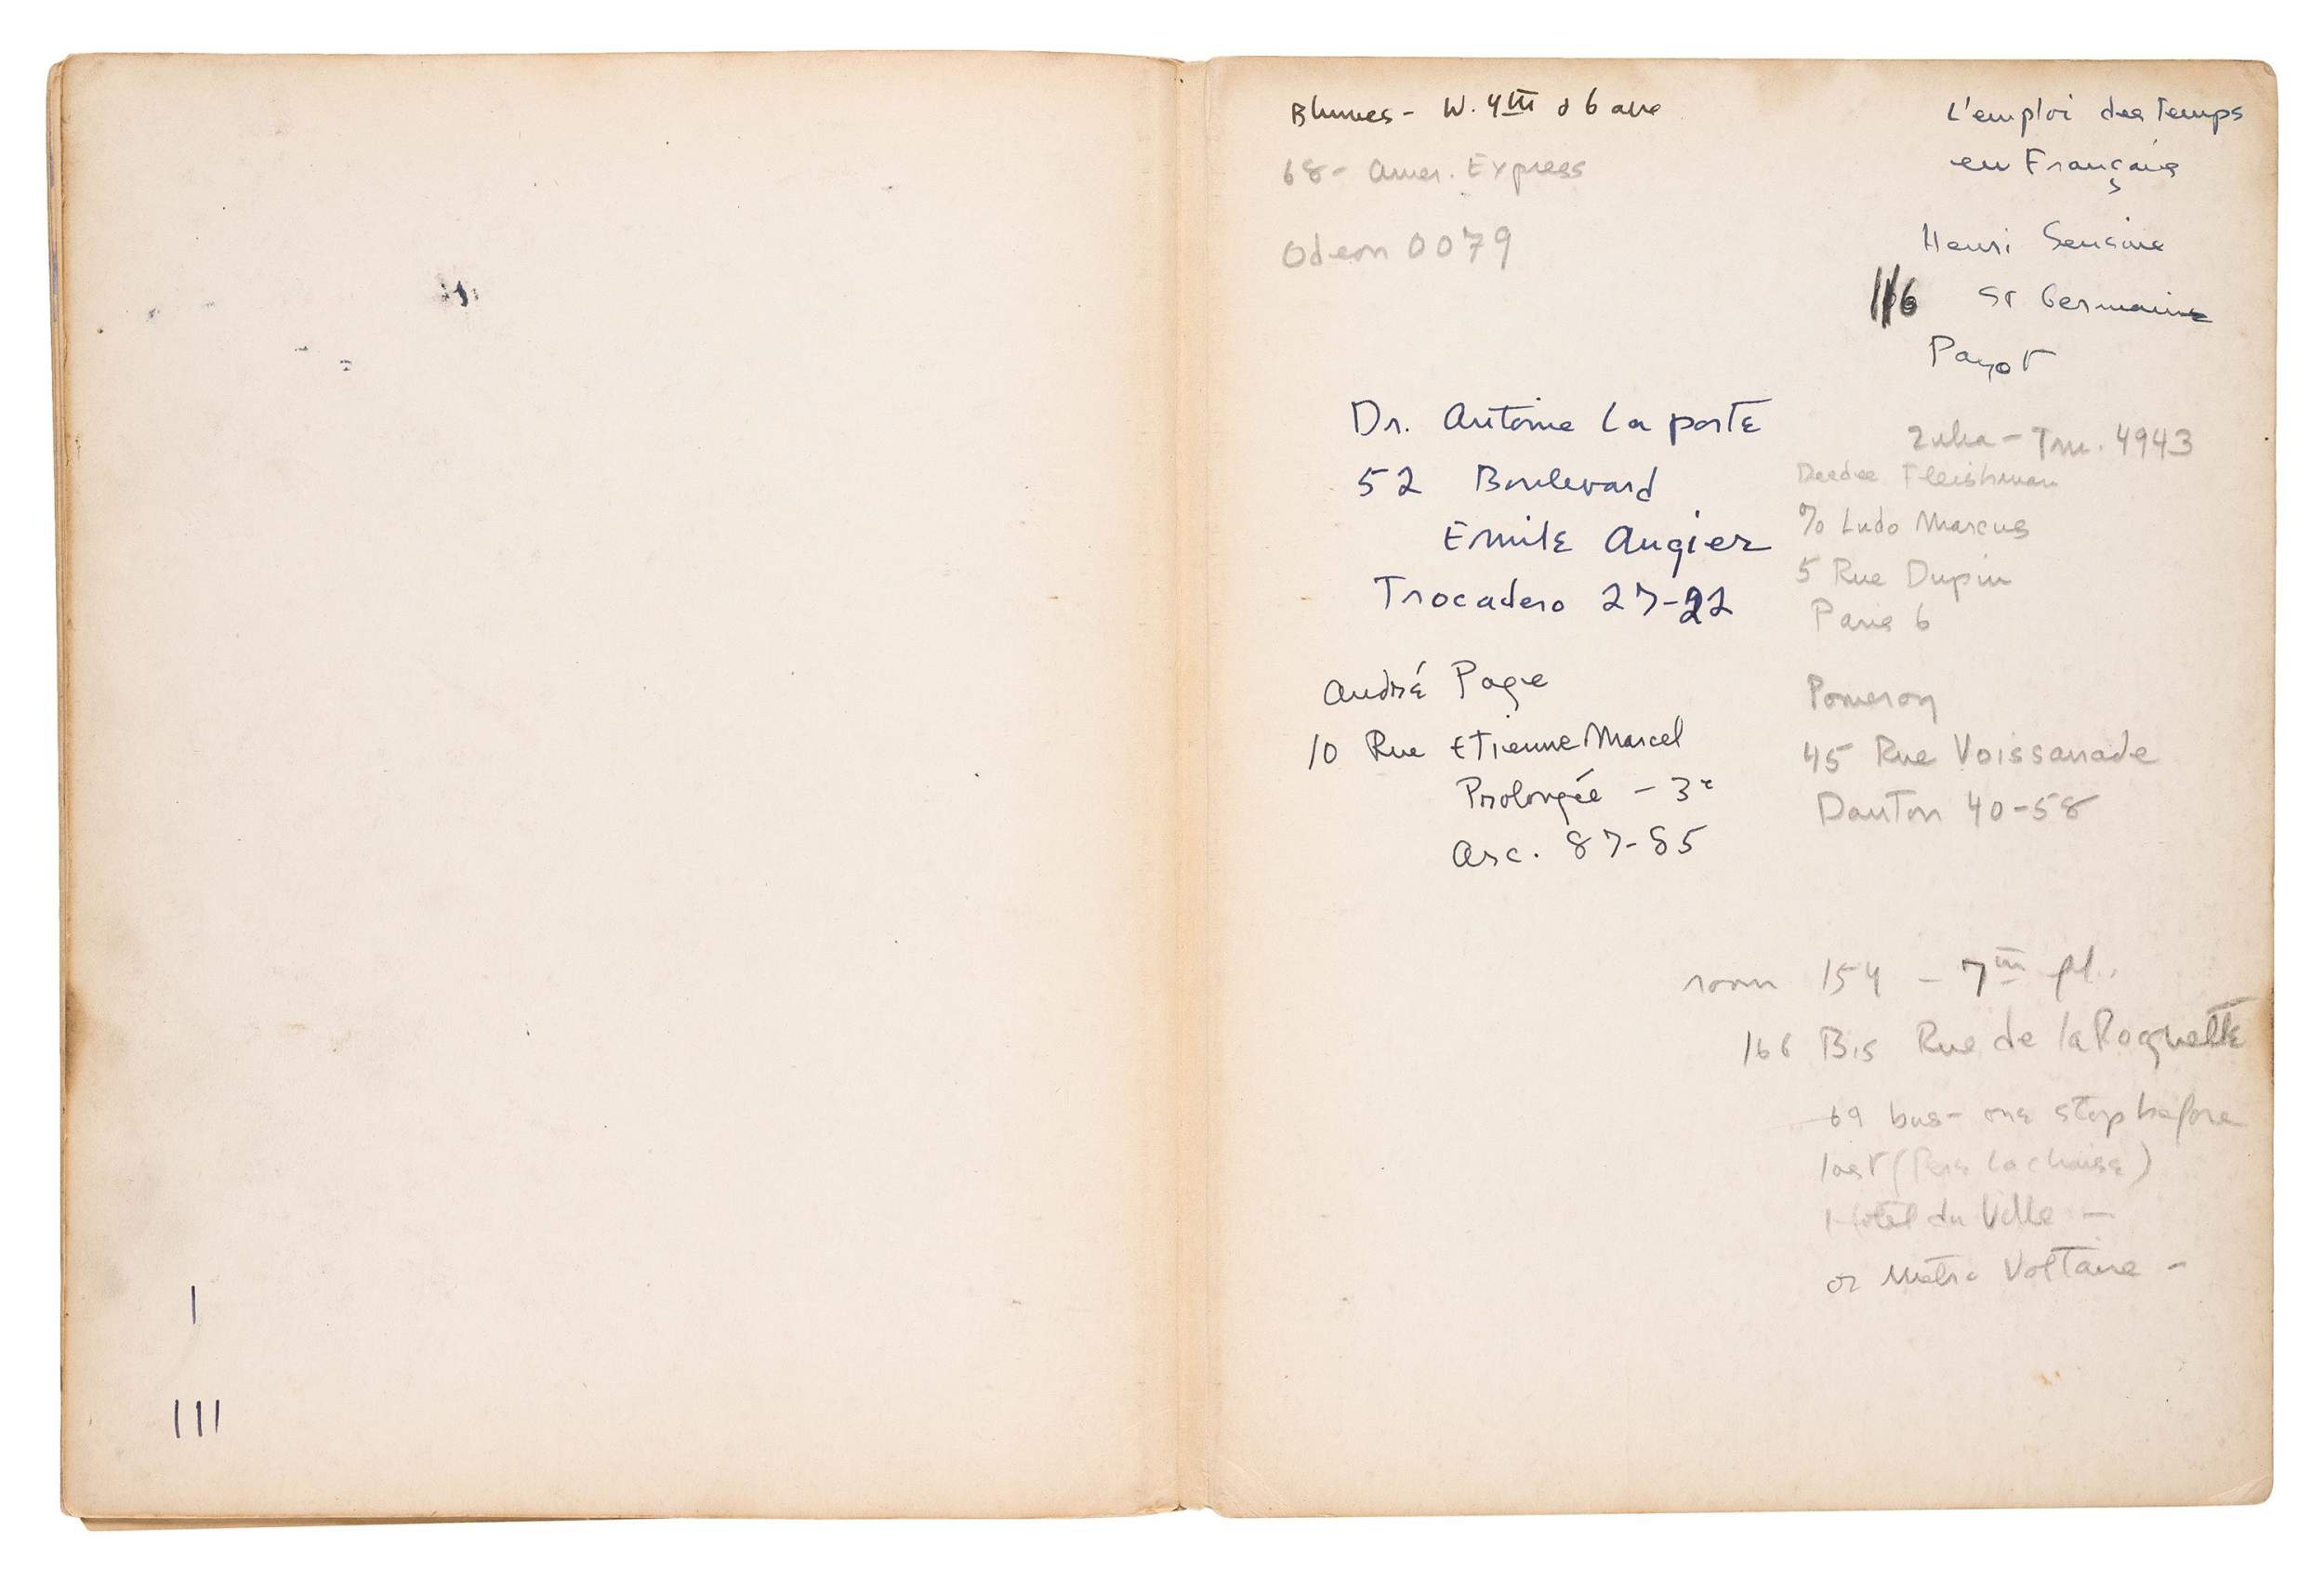 I
III
W. 4th & 6 ave
68 - Amer. Express
Odeon 0079
L'emploi des Temps
en Français
Henri Sensine
116 St Germain
Payot
Dr. Antoine La porte
52 Boulevard
Emile Augier
Trocadero 27-22
André Page
10 Rue Etienne Marcel
Prolongée - 3e
Arc. 87-85
4943
Deedee Fleishman
℅ Ludo Marcus
5 Rue Dupin
Paris 6
Pomeroy
45 Rue Voissanade
Danton 40-58
room 154 - 7th fl.
166 Bis Rue de la Roquette
69 bus - one stop before
last (Pere Lachaise)
Hotel du Ville -
or Métro Voltaire -